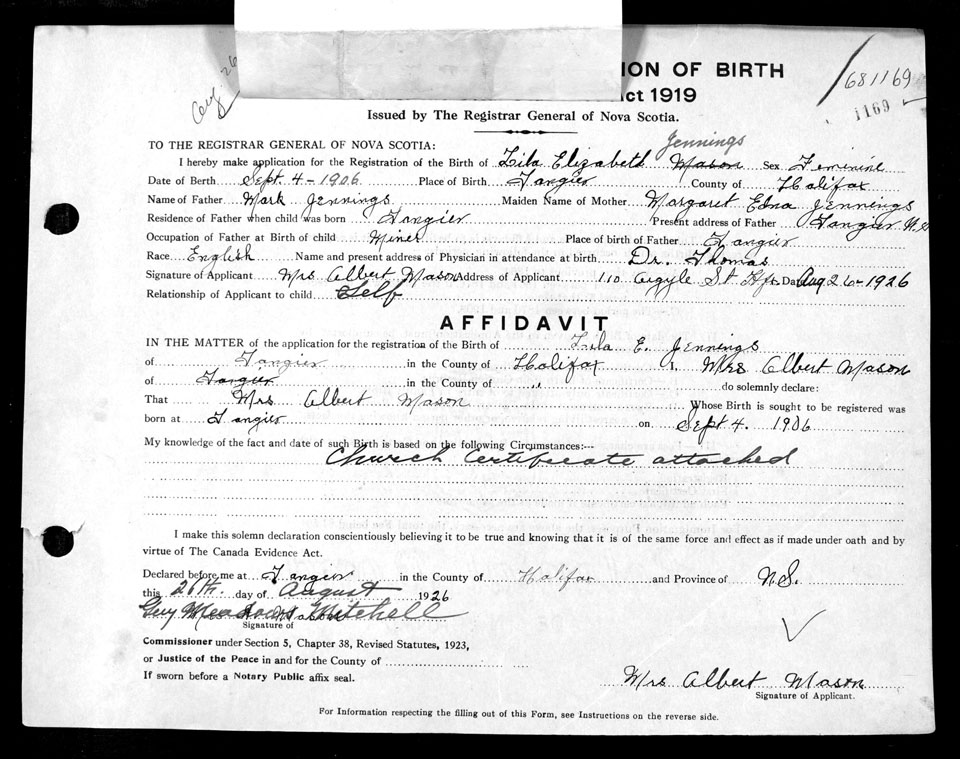 Aug 26
ION OF BIRTH
ct 1919
Issued by The Registrar General of Nova Scotia.
681169
1169
TO THE REGISTRAR GENERAL OF NOVA SCOTIA:
Jennings
I hereby make application for the Registration of the Birth of Lila Elizabeth Mason Sex Feminine
Date of Birth Sept. 4 - 1906 Place of Birth Tangier County of Halifax
Name of Father Mark Jennings Maiden Name of Mother Margaret Edna Jennings
Residence of Father when child was born Tangier Present address of Father Tangier N.S
Occupation of Father at Birth of child Miner Place of birth of Father Tangier
Race English Name and present address of Physician in attendance at birth Dr. Thomas
Signature of Applicant Mrs Albert Mason Address of Applicant 110 Argyle St Hfx Date Aug 26-1926
Relationship of Applicant to child Self
AFFIDAVIT
IN THE MATTER of the application for the registration of the Birth of Lila E. Jennings
of Tangier in the County of Halifax I, Mrs Albert Mason
of Tangier in the County of " do solemnly declare:
That Mrs Albert Mason Whose Birth is sought to be registered was
born at Tangier on Sept 4. 1906
My knowledge of the fact and date of such Birth is based on the following Circumstances:--
Church Certificate attached
I make this solemn declaration conscientiously believing it to be true and knowing that it is of the same force and effect as if made under oath and by
virtue of The Canada Evidence Act.
Declared before me at Tangier in the County of Halifax and Province of N.S.
this 26th. day of August 1926
Guy Mitchell
Signature of
Commissioner under Section 5, Chapter 38, Revised Statutes, 1923,
or Justice of the Peace in and for the County of
If sworn before a Notary Public affix seal.
Mrs Albert Mason
Signature of Applicant.
For Information respecting the filling out of this Form, see Instructions on the reverse side.